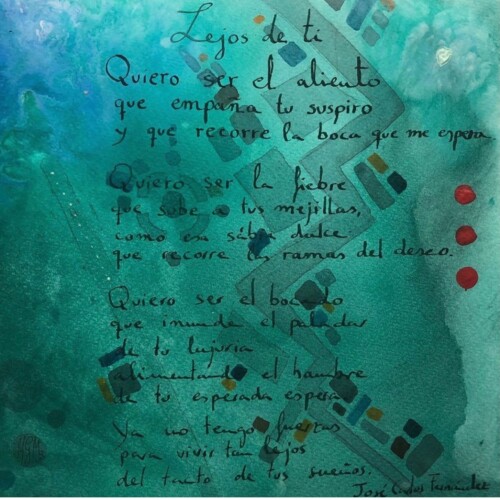 Lejos de ti
Quiero ser el aliento
que empaña tu suspiro
y que recorre la boca que me espera.
Quiero ser la fiebre
que sube a tus mejillas,
como esa sábia dulce
que recorre las ramas del deseo.
Quiero ser el bocado
que inunde el paladar
de tu lujuria
alimentando el hambre
de tu esperada espera.
Ya no tengo fuerzas
para vivir tan lejos
del tacto de tus sueños.
José Carlos Fernández